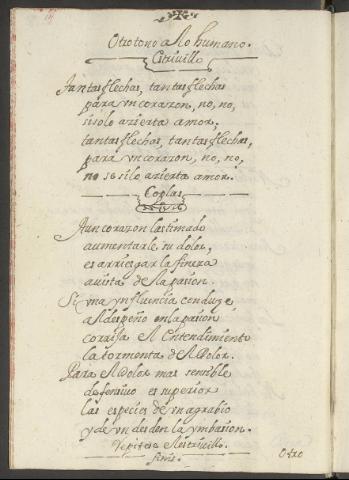 Otro tono a Lo humano.
Estriuillo
Tantas flechas, tantas flechas
para vn corazon, no, no,
si solo azierta amor;
tantas flechas, tantas flechas,
para vn corazon, no, no,
no se silo azierta amor.
Coplas
Aun corazon lastimado
aumentarle su dolor,
es arriesgar la fineza
auista de la pasion.
Si vna ynfluencia conduze
al despeño en la pasion
corrija el Entendimiento
la tormenta de el Dolor.
Para el Dolor mas sensible
defensiuo es superior
las especies de vn agrabio
y de vn desden la ymbasion.
Repitese el estriuillo.
finis.
Otro